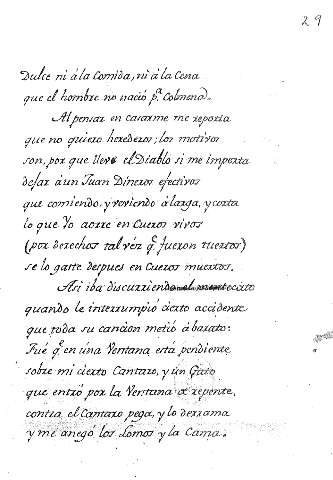 29
Dulce ni á la Comida, ni á la Cena
que el hombre no nació p.ª Colmena.
Al pensar en casarme me reporta
que no quiero herederos; los motivos
son, por que lleve el Diablo si me importa
dejar á un Juan Dineros efectivos
que comiendo, y veviendo á larga, y corta
lo que Yo aorre en Cueros vivos
(por derechos tal véz q.e fueron tuertos)
se lo gaste despues en Cueros muertos.
Asi iba discurriendo
quando le interrumpió cierto accidente
que toda su cancion metió á barato:
Fué q.e en úna Ventana está pendiente
sobre mi cierto Cantaro, y ún Gato
que entró por la Ventana de repente,
contra el Cantaro pega, y lo derrama
y me anegó los Lomos y la Cama.